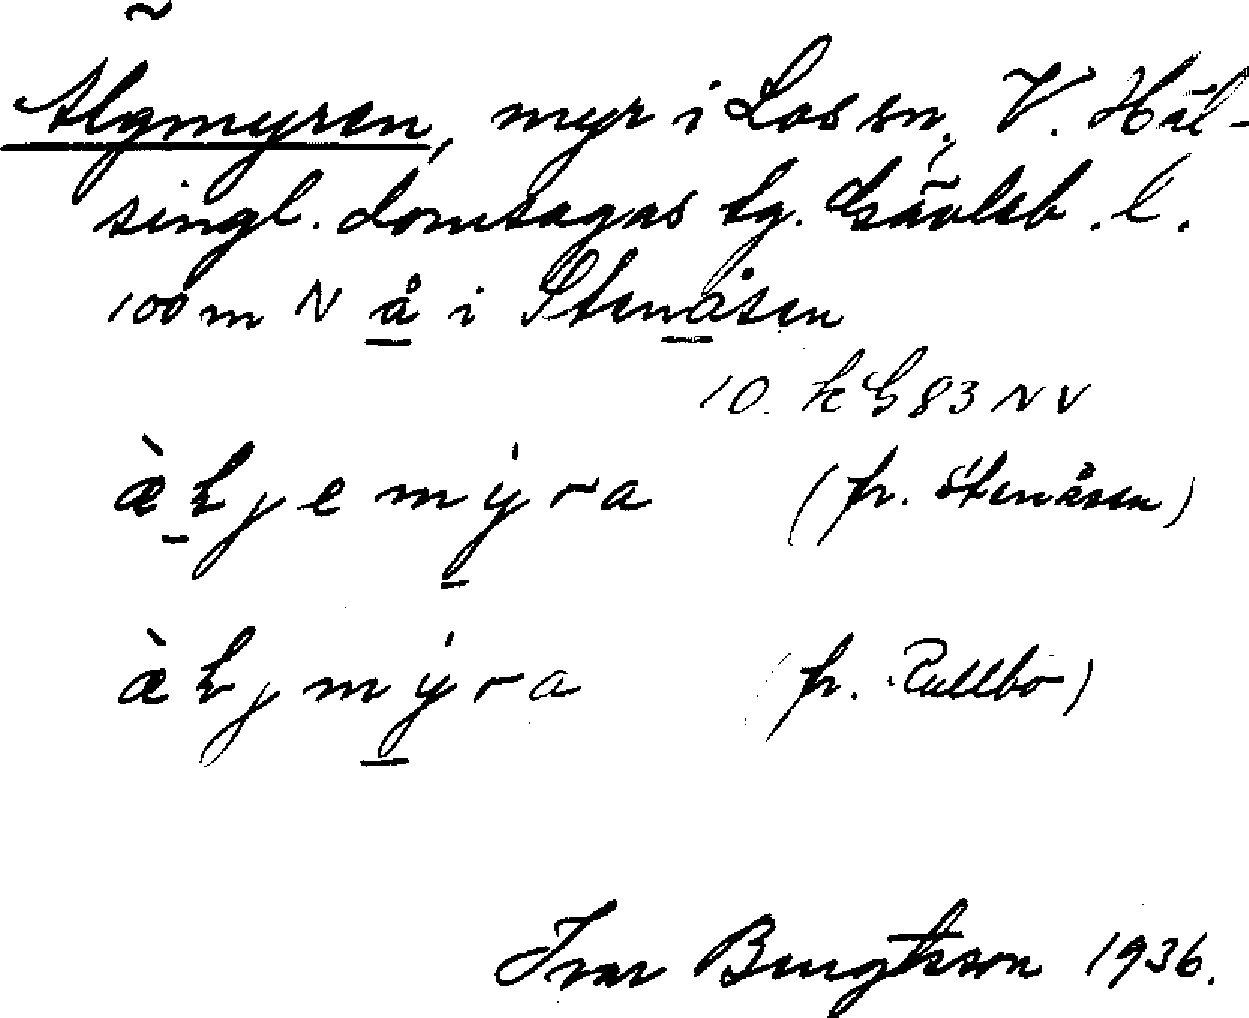 Älgmyren, myr i Los sn, V. Häl-
singl. domsagas tg. Gävleb. l.
100 m N å i Stenåsen
10. k G 83 NV
æ̀Ljemy̍ra (fr. Stenåsen)
æ̀Ljmy̍ra (fr. Rullbo)
Ivar Bengtsson 1936.